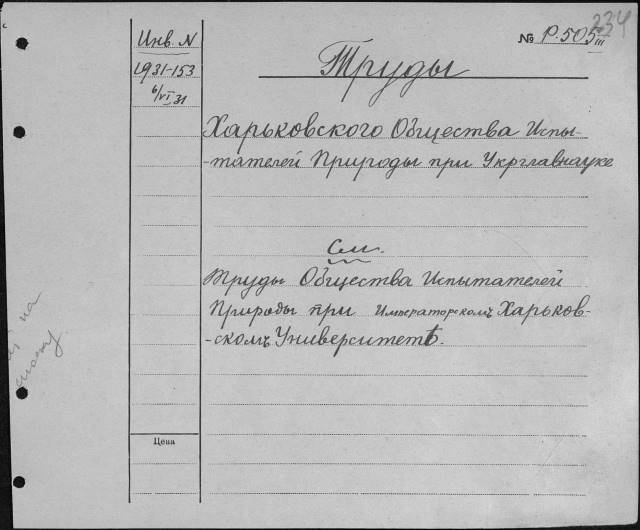 234
Инв. N
№ Р.505 III
1931-153
6/VI 31
Труды
Харьковского Общества Испы-
-тателей Природы при Укрглавнауке
См.
Труды Общества Испытателей
Природы при Императорскомъ Харьков-
-скомъ Университетѣ.
на
Цена